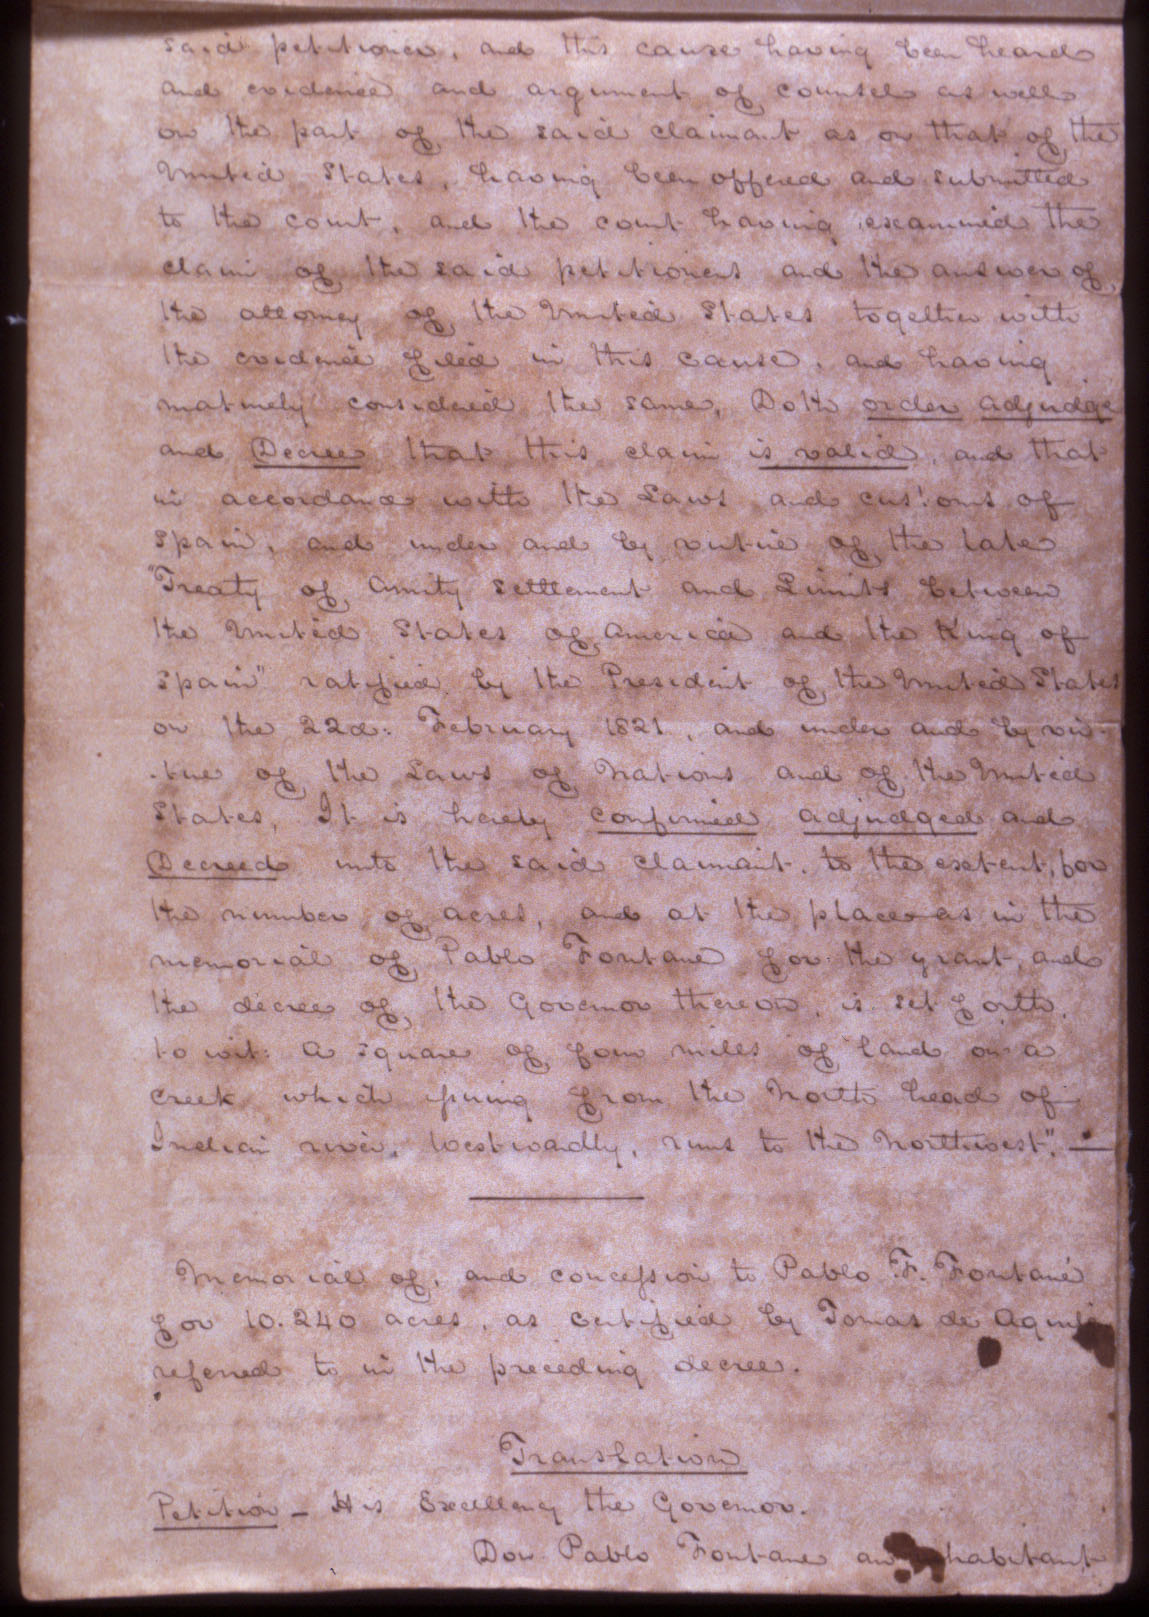 said petitioner, and this cause having been heard
and evidence and argument of counsel as well
on the part of the said claimant as on that of the
United States, having been offered and submitted
to the court, and the court having examined the
claim of the said petitioners and the answer of
the attorney of the United States together with
the evidence filed in this cause, and having
maturely considered the same, Doth order adjudge
and Decree that this claim is valid, and that
in accordance with the Laws and customs of
Spain, and under and by virtue of the late
"Treaty of Amity Settlement and Limits between
the United States of America and the King of
Spain" ratified by the President of the United States
on the 22d: February 1821, and under and by vir-
-tue of the Laws of Nations and of the United
States, It is hereby confirmed adjudged and
Decreed unto the said claimant to the extent, for
the number of acres, and at the place as in the
memorial of Pablo Fontane for the grant, and
the decree of the Governor thereon, is set forth
to wit: A square of four miles of land on a
creek which spring from the North head of
Indian river, Westwardly, runs to the Northwest". —
Memorial of, and concession to Pablo F. Fontané
for 10.240 acres, as certified by Tomas de Aguilar
referred to in the preceding decree.
Translation
Petition – His Excellency the Governor.
Don Pablo Fontane an inhabitant